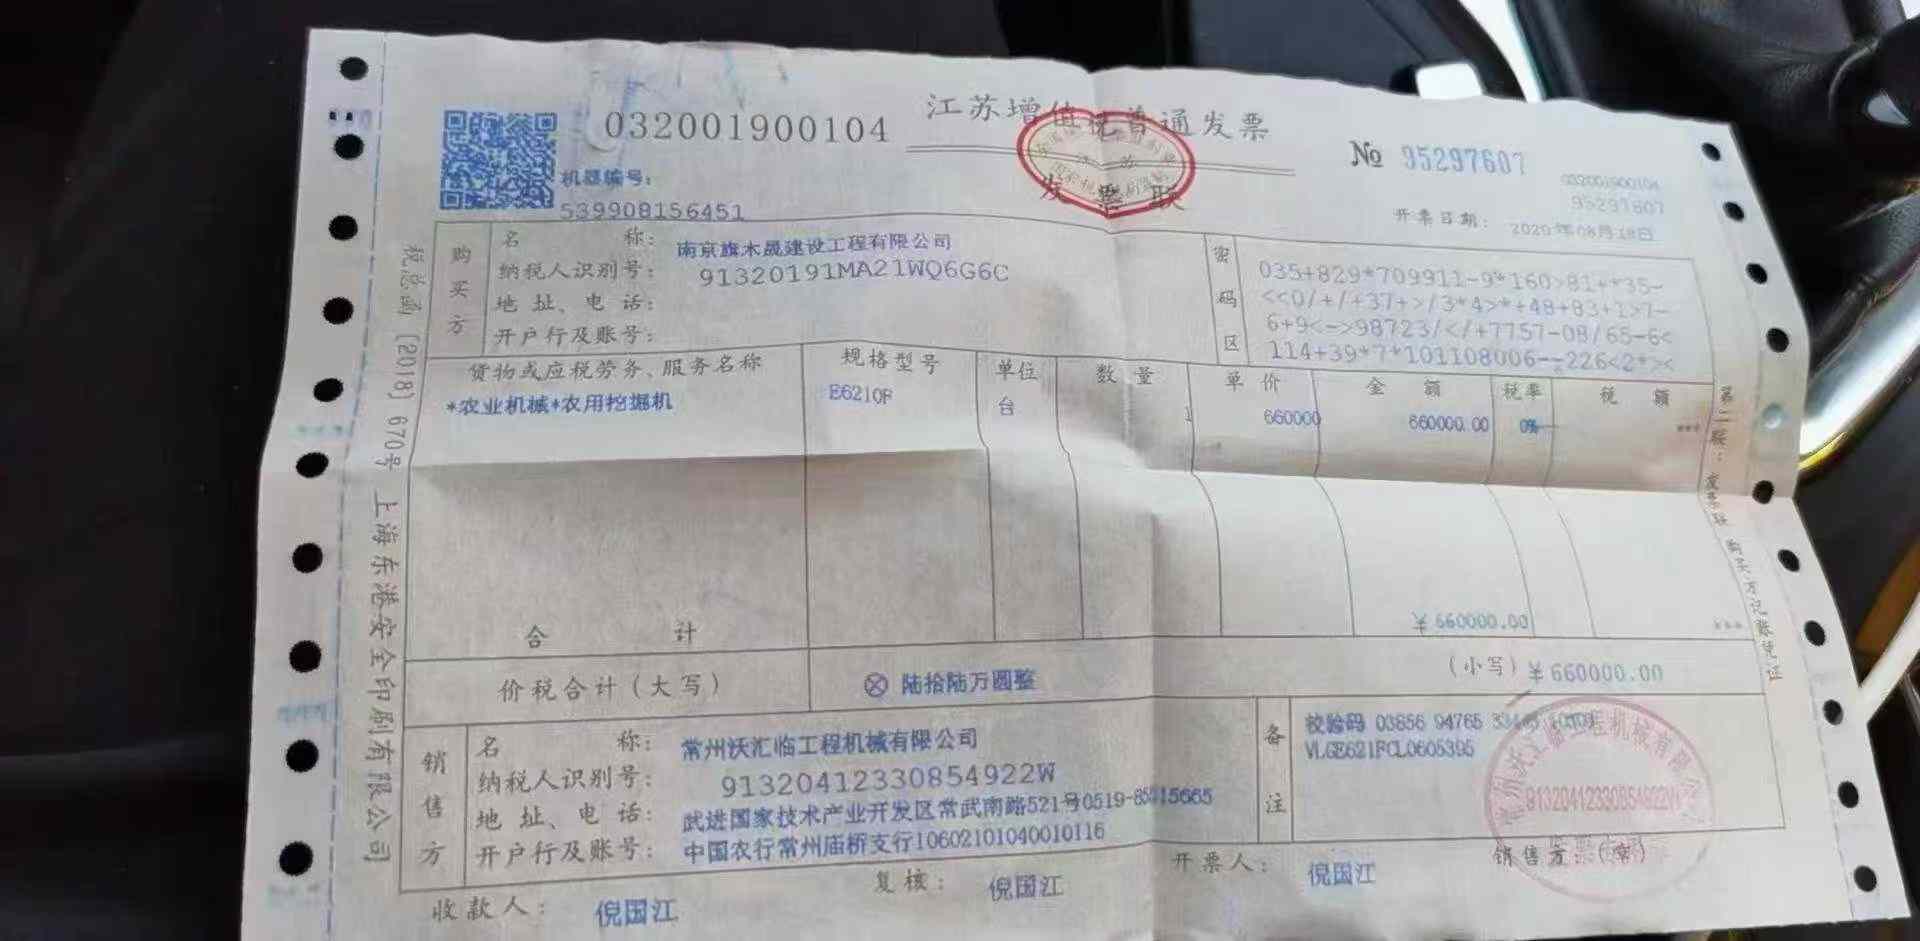 032001900104
江苏增值税普通发票
发票联
№ 95297607
032001900104
95297607
机器编号:
539908156451
开票日期: 2020年08月18日
购买方
名 称: 南京旗木晟建设工程有限公司
纳税人识别号: 91320191MA21WQ6G6C
地 址、电 话:
开户行及账号:
密码区
035+829*709911-9*160>81+*35-
<<0/+/+37+>/3*4>*+48+83+1>7-
6+9<->98723/</+7757-08/65-6<
114+39*7*101108006--226<2*><
货物或应税劳务、服务名称 规格型号 单位 数 量 单 价 金 额 税率 税 额
*农业机械*农用挖掘机 E6210F 台 1 660000 660000.00 0% ***
合 计 ¥660000.00 ***
价税合计(大写) ⊗ 陆拾陆万圆整 (小写) ¥660000.00
销售方
名 称: 常州沃汇临工程机械有限公司
纳税人识别号: 91320412330854922W
地 址、电 话: 武进国家技术产业开发区常武南路521号0519-85515665
开户行及账号: 中国农行常州庙桥支行10602101040010116
备注
校验码 03856 94765
VLGE621FCL0605395
91320412330854922W
收款人: 倪国江 复核: 倪国江 开票人: 倪国江 销售方:(章)
税总函〔2018〕670号 上海东港安全印刷有限公司
第二联:发票联 购买方记账凭证